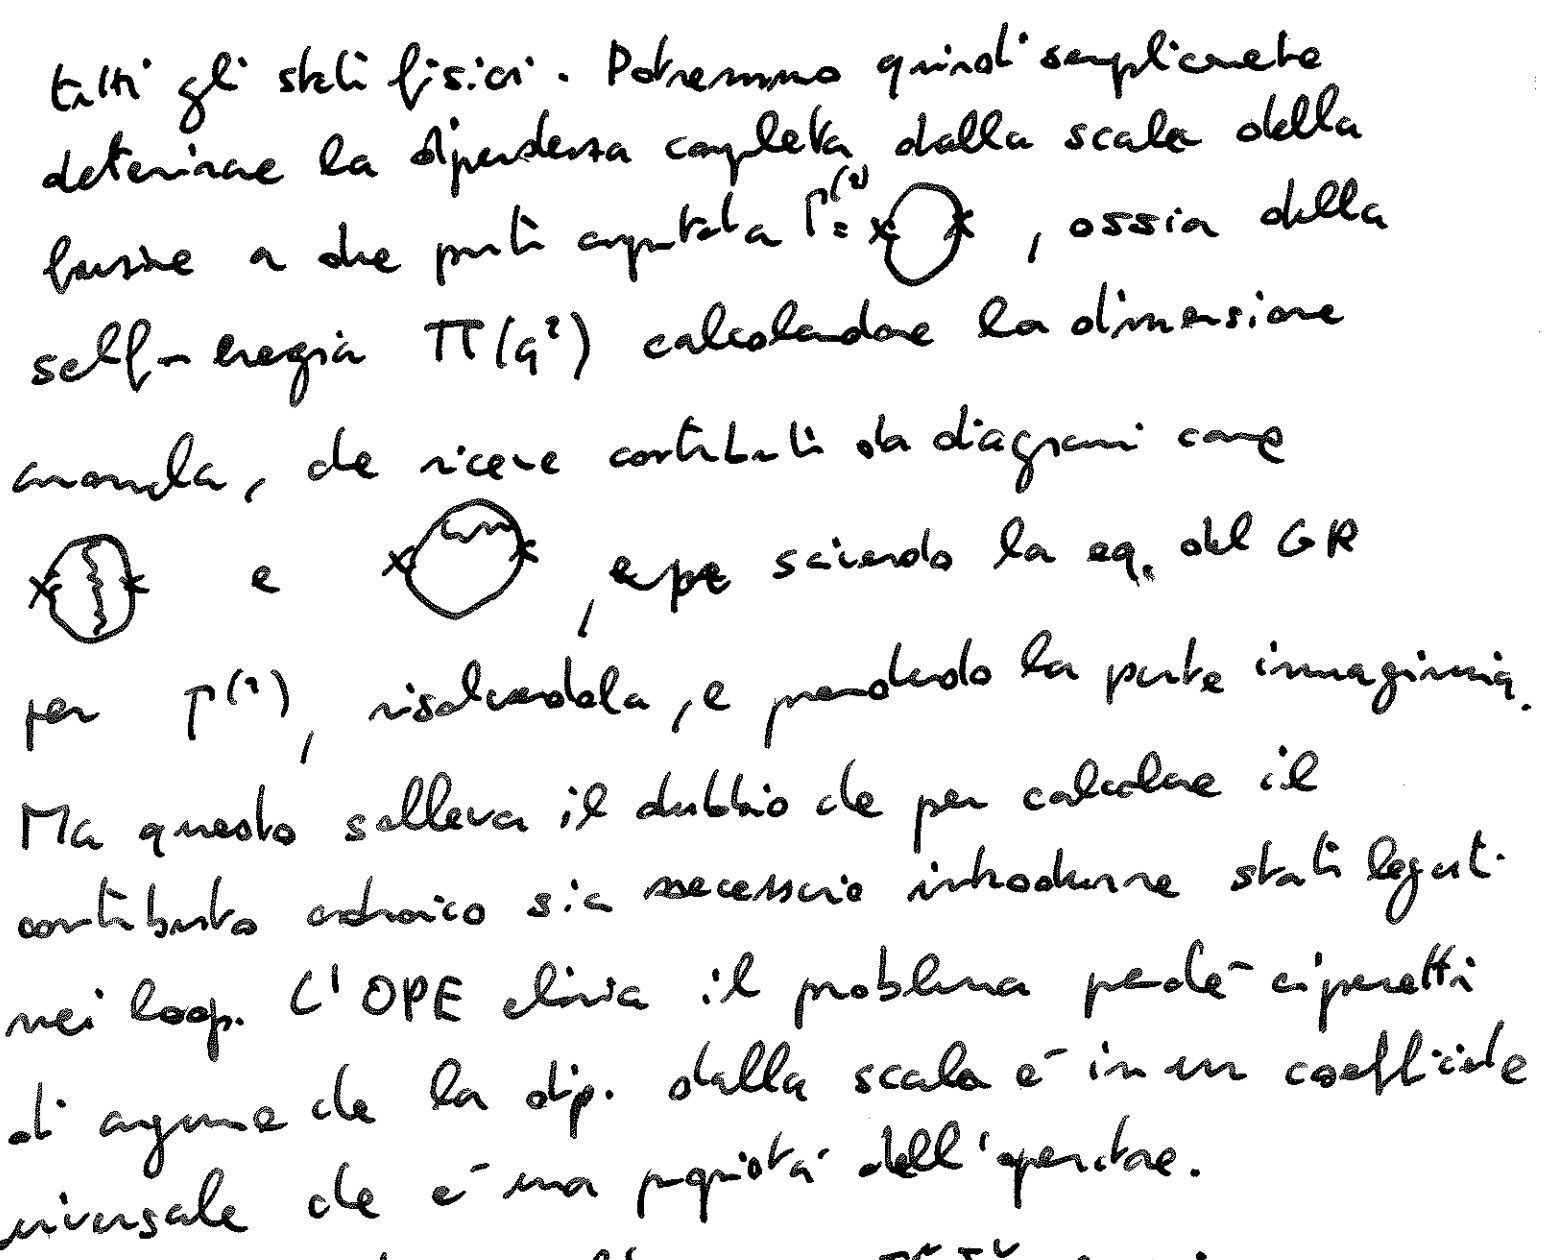 tutti gli stati fisici. Potremmo quindi semplicemente
determinare la dipendenza completa dalla scala della
funzione a due punti amputata Γ⁽²⁾ = , ossia della
self-energia Π(q²) calcolandone la dimensione
anomala, che riceve contributi da diagrammi come
e , e poi scrivendo la eq. del GR
per Γ⁽²⁾, risolvendola, e prendendo la parte immaginaria.
Ma questo solleva il dubbio che per calcolare il
contributo adronico sia necessario introdurre stati legati
nei loop. L'OPE elimina il problema perché ci permetti
di argume che la dip. dalla scala è in un coefficiente
universale che è una proprietà dell'operatore.